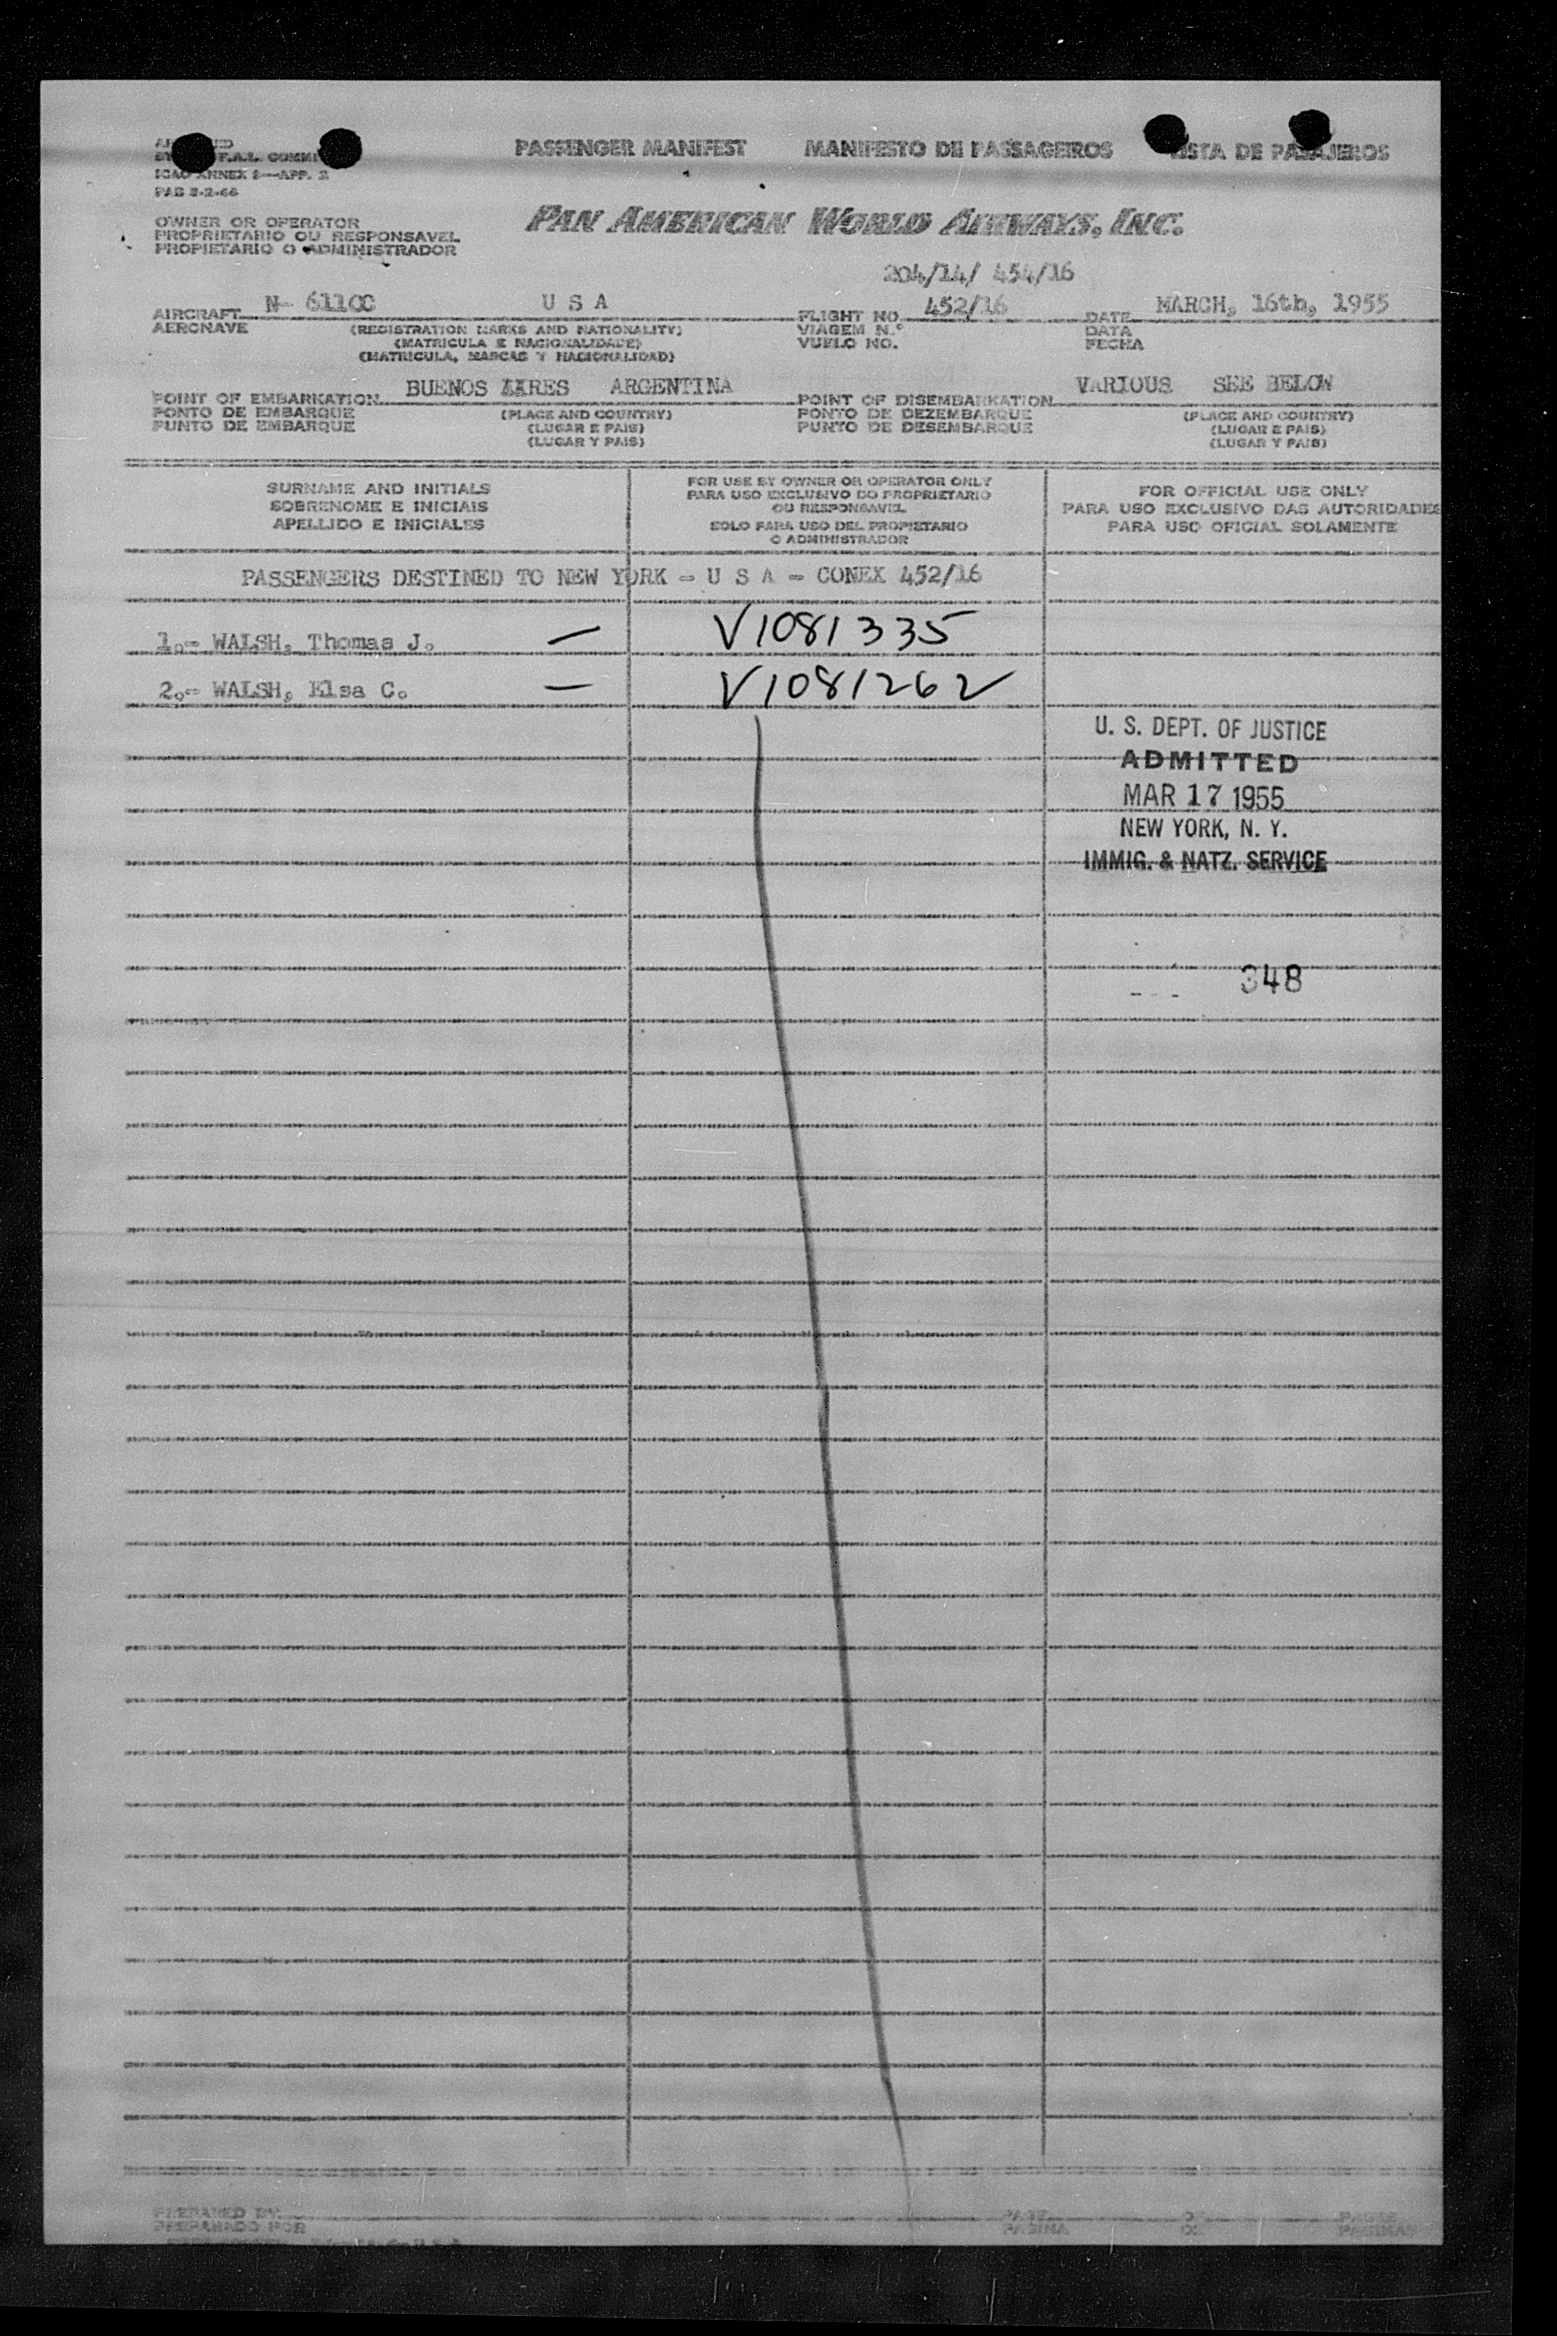 PASSENGER MANIFEST MANIFESTO DE PASSAGEIROS LISTA DE PASAJEROS
F.A.L. COMMI
ICAO ANNEX 9—APP. 2
OWNER OR OPERATOR
PROPRIETARIO OU RESPONSAVEL
PROPIETARIO O ADMINISTRADOR
PAN AMERICAN WORLD AIRWAYS, INC.
204/14/ 454/16
AIRCRAFT N- 6110C U S A FLIGHT NO. 452/16 DATE MARCH, 16th, 1955
AERONAVE (REGISTRATION MARKS AND NATIONALITY) VIAGEM N.º DATA
(MATRICULA E NACIONALIDADE) VUELO NO. FECHA
(MATRICULA, MARCAS Y NACIONALIDAD)
POINT OF EMBARKATION BUENOS AIRES ARGENTINA POINT OF DISEMBARKATION VARIOUS SEE BELOW
PONTO DE EMBARQUE (PLACE AND COUNTRY) PONTO DE DEZEMBARQUE (PLACE AND COUNTRY)
PUNTO DE EMBARQUE (LUGAR E PAIS) PUNTO DE DESEMBARQUE (LUGAR E PAIS)
(LUGAR Y PAIS) (LUGAR Y PAIS)
SURNAME AND INITIALS
SOBRENOME E INICIAIS
APELLIDO E INICIALES
FOR USE BY OWNER OR OPERATOR ONLY
PARA USO EXCLUSIVO DO PROPRIETARIO
OU RESPONSAVEL
SOLO PARA USO DEL PROPIETARIO
O ADMINISTRADOR
FOR OFFICIAL USE ONLY
PARA USO EXCLUSIVO DAS AUTORIDADES
PARA USO OFICIAL SOLAMENTE
PASSENGERS DESTINED TO NEW YORK - U S A - CONEX 452/16
1.- WALSH, Thomas J. — V1081335
2.- WALSH, Elsa C. — V1081262
U. S. DEPT. OF JUSTICE
ADMITTED
MAR 17 1955
NEW YORK, N. Y.
IMMIG. & NATZ. SERVICE
348
PREPARED BY PAGE OF PAGES
PREPARADO POR PAGINA DE PAGINAS